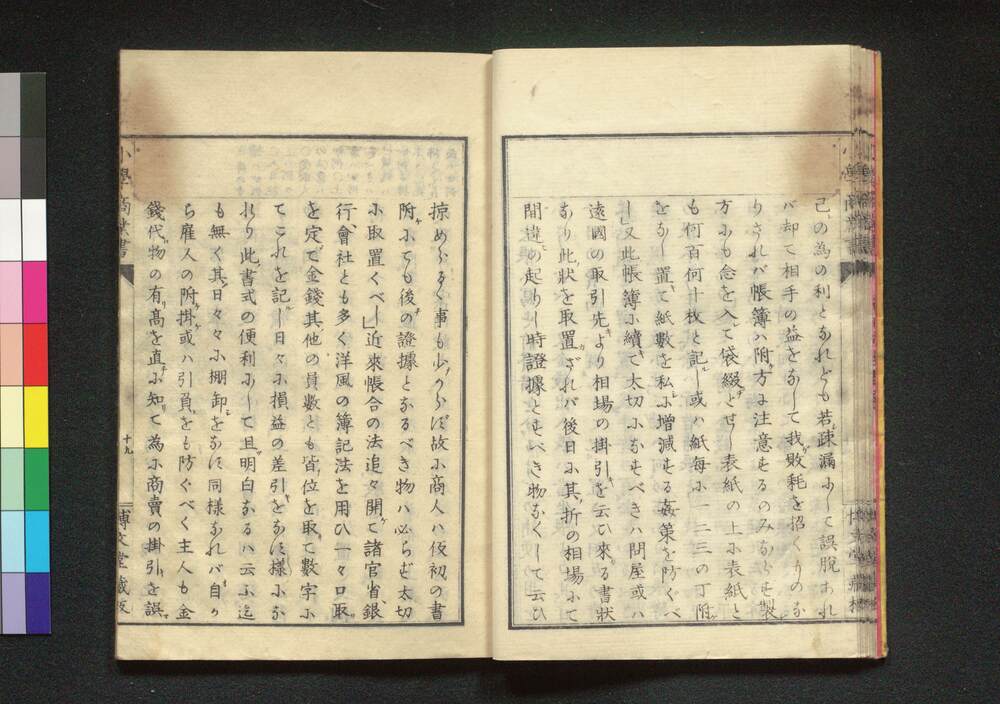 己の為の利となれども若疎漏にして誤脱あれ
バ却て相手の益をなして我敗耗を招くりのな
りされバ帳簿ハ附方に注意せるのみならせ製
方にも念を入て袋綴とせし表紙の上に表紙と
も何百何十枚と記し或ハ紙毎に一二三の丁附
をなし置て紙數を私に増減せる姦策を防ぐべ
し又此帳簿に續て大切になせべきハ問屋或ハ
遠國の取引先より相場の掛引を云ひ來る書状
なり此状を取置ざれバ後日に其折の相場にて
間違の起りし時證據とせべき物なくして云ひ
掠めらるゝ事も少からに故に商人ハ仮初の書
附にても後の證據となるべき物ハ必らぜ太切
に取置くべし」近來帳合の法追々開て諸官省銀
行會社とも多く洋風の簿記法を用ひ一々口取
を定て金錢其他の員數とも皆位を取て數字に
てこれを記し日々に損益の差引をなに様にな
れり此書式の便利にして且明白なるハ云ふ迄
も無く其日々々に棚卸をなに同様なれバ自か
ら雇人の附掛或ハ引負をも防ぐべく主人も金
錢代物の有髙を直に知て為に商賣の掛引を誤
小學商業書
十九
博文堂藏板